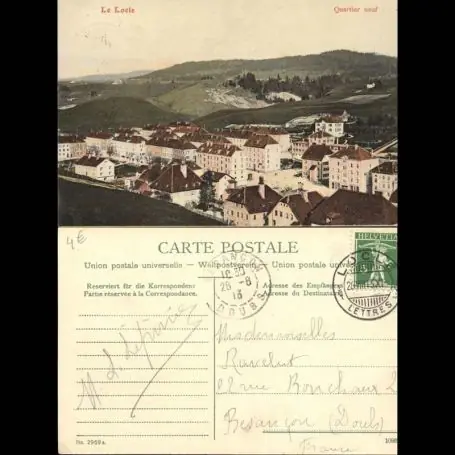 Le Locle
Quartier neuf
4€
CARTE POSTALE
Union postale universelle — Weltpostverein — Union postale
Reserviert für die Korrespondenz
Partie réservée à la Correspondance.
Adresse des Empfängers
Adresse du Destinataire
HELVETIA
LOCLE
LETTRES
BESANÇON
DOUBS
Mesdemoiselles
22 rue Ronchaux 2
Besançon (Doubs)
France
No. 2969a.